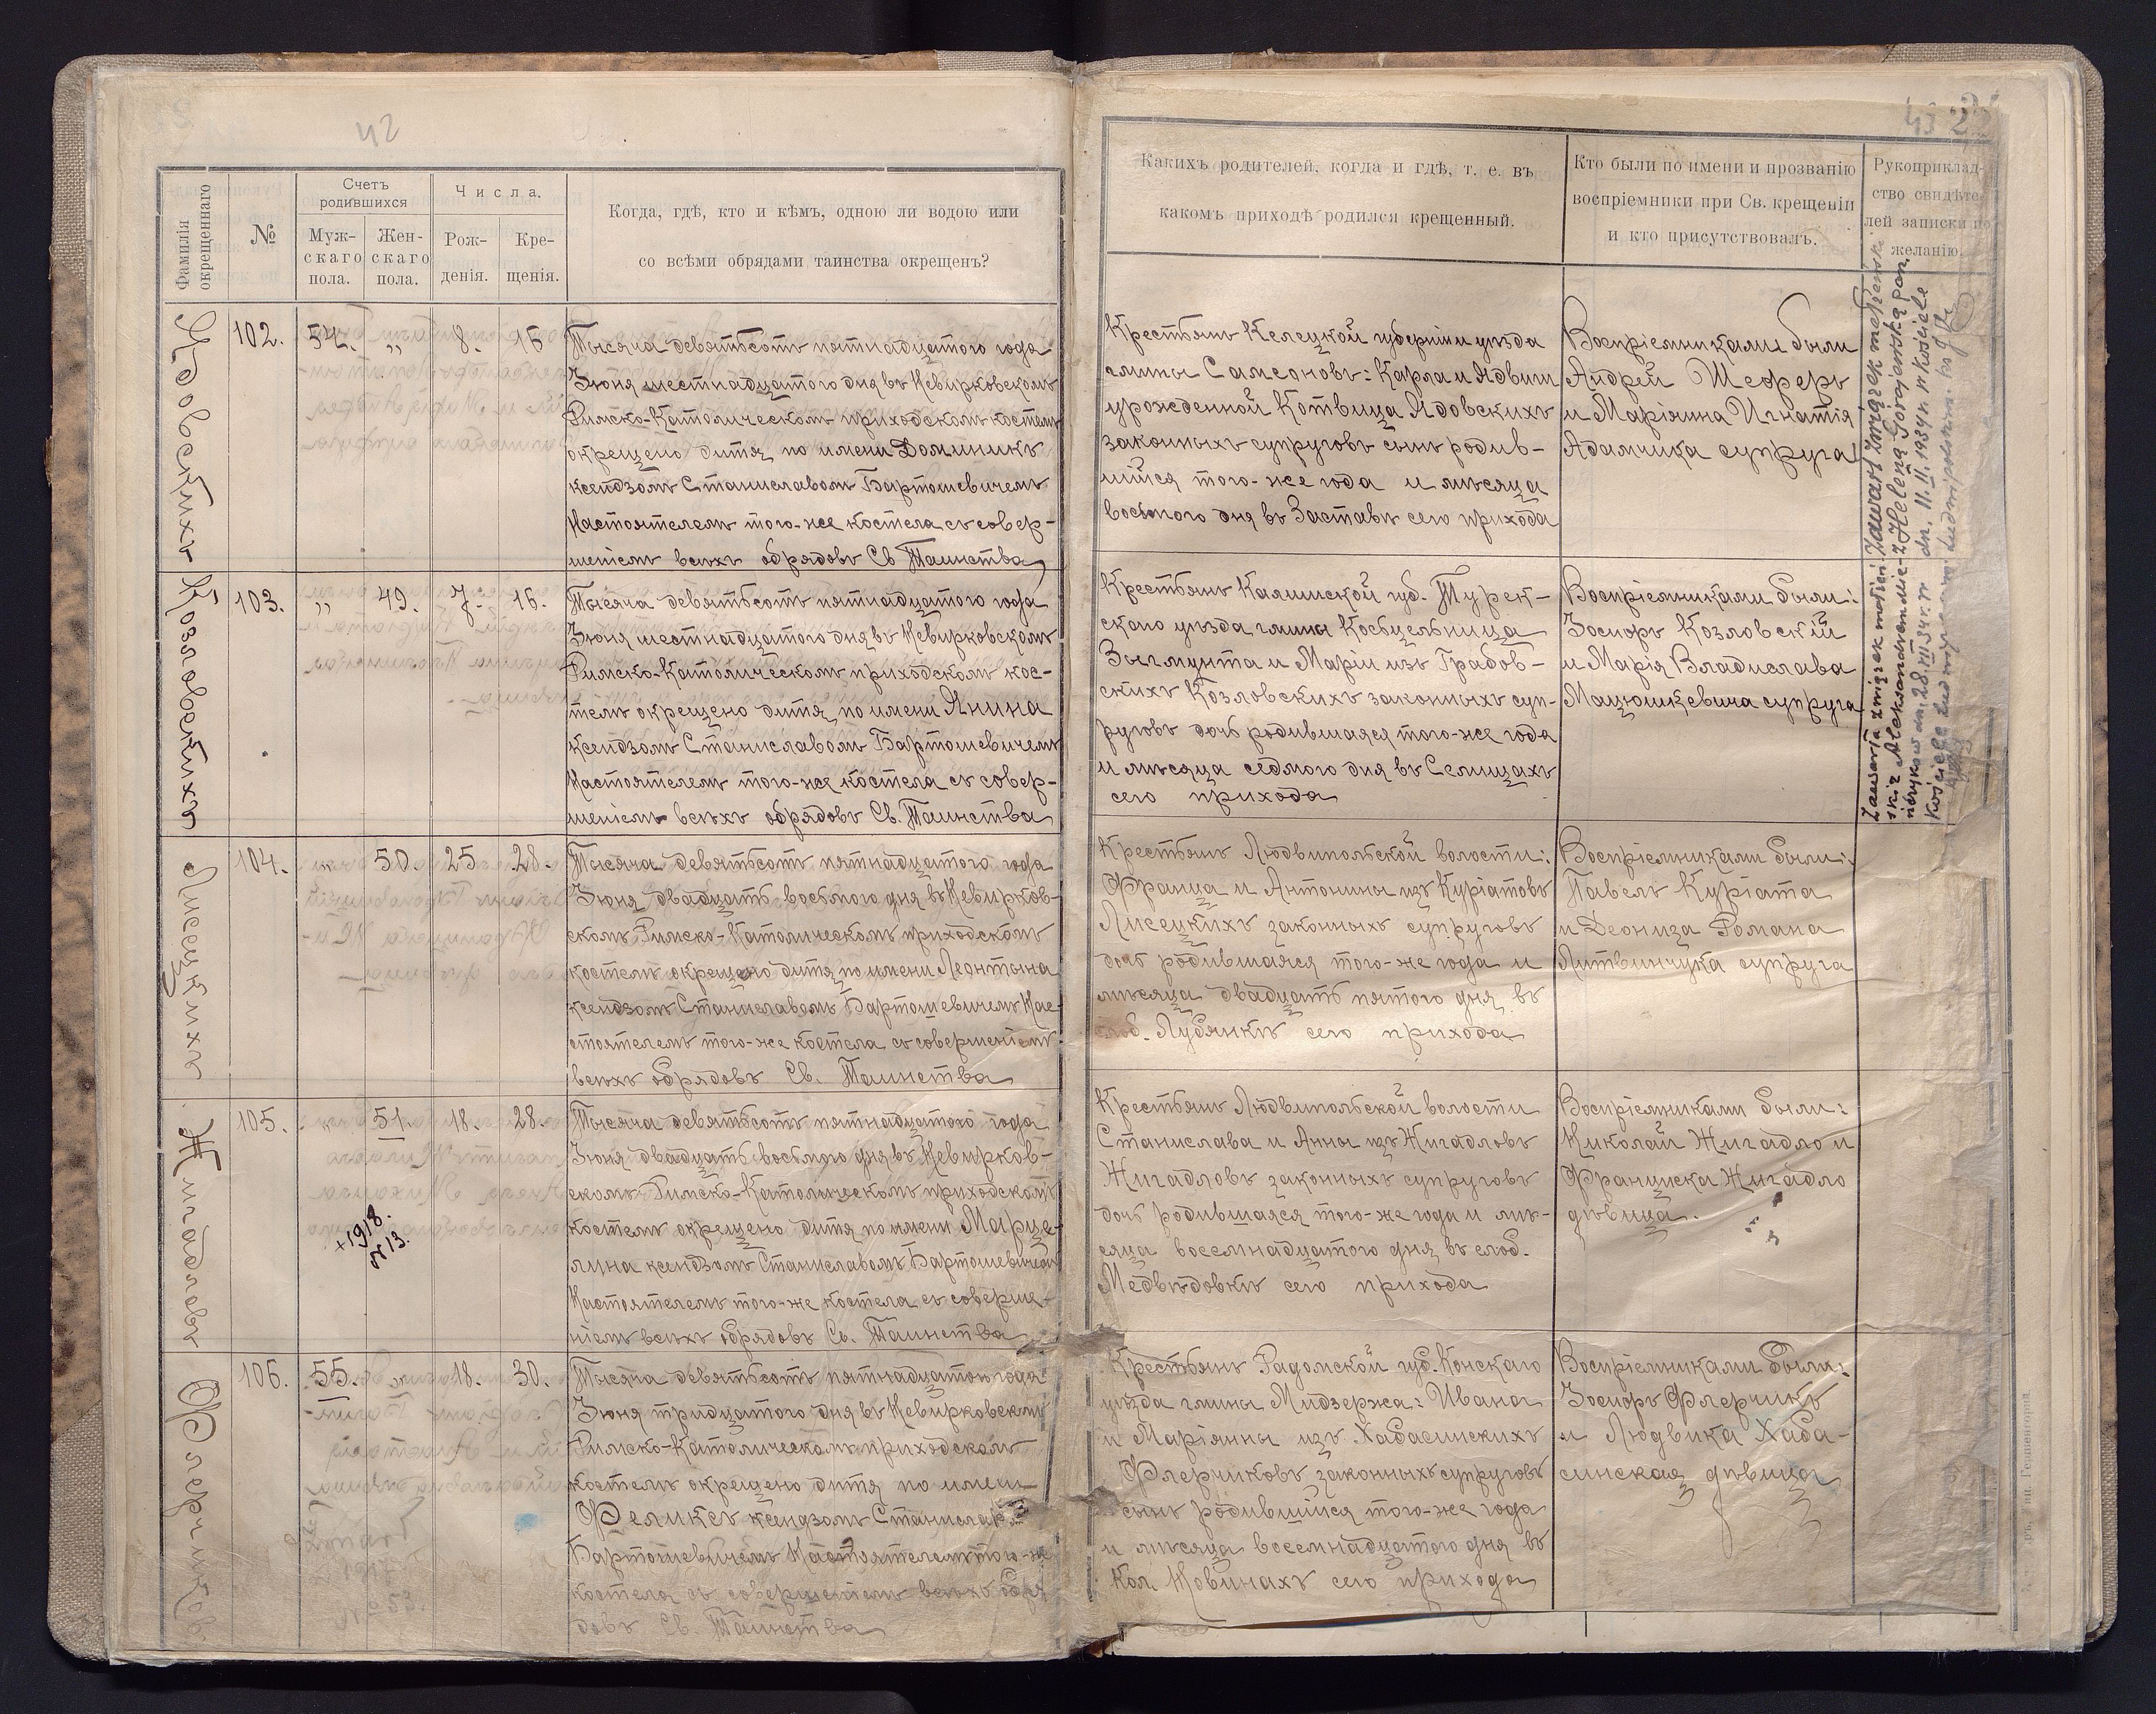 42
Фамилія окрещеннаго
№
Счетъ родившихся
Муж-скаго пола.
Жен-скаго пола.
Числа.
Рож-денія.
Кре-щенія.
Когда, гдѣ, кто и кѣмъ, одною ли водою или
со всѣми обрядами таинства окрещенъ?
Ядовскихъ
102. 54. „ 8. 16
Тысяча девятьсотъ пятнадцатого года
Іюня шестнадцатого дня въ Невирковскомъ
Римско-Католическомъ приходскомъ костелѣ
окрещено дитя по имени Доминикъ
ксендзомъ Станиславомъ Бартошевичемъ
Настоятелемъ того-же костела съ совер-
шеніемъ всѣхъ обрядовъ Св. Таинства
Козловскихъ
103. „ 49. 7. 16.
Тысяча девятьсотъ пятнадцатого года
Іюня шестнадцатого дня въ Невирковскомъ
Римско-Католическомъ приходскомъ кос-
телѣ окрещено дитя по имени Янина
ксендзомъ Станиславомъ Бартошевичемъ
Настоятелемъ того-же костела съ совер-
шеніемъ всѣхъ обрядовъ Св. Таинства
Лисецкихъ
104. „ 50. 25 28.
Тысяча девятьсотъ пятнадцатого года
Іюня двадцать восьмого дня въ Невирков-
скомъ Римско-Католическомъ приходскомъ
костелѣ окрещено дитя по имени Леонтына
ксендзомъ Станиславомъ Бартошевичемъ Нас-
стоятелемъ того-же костела съ совершеніемъ
всѣхъ обрядовъ Св. Таинства
Жигадловъ
105. „ 51. 18. 28.
+1918. № 13.
Тысяча девятьсотъ пятнадцатого года
Іюня двадцать восьмого дня въ Невирков-
скомъ Римско-Католическомъ приходскомъ
костелѣ окрещено дитя по имени Марце-
лина ксендзомъ Станиславомъ Бартошевичемъ
Настоятелемъ того-же костела съ соверше-
ніемъ всѣхъ обрядовъ Св. Таинства
Флерчиковъ
106. 55. „ 18. 30.
Тысяча девятьсотъ пятнадцатого года
Іюня тридцатого дня въ Невирковскомъ
Римско-Католическомъ приходскомъ
костелѣ окрещено дитя по имени
Феликсъ ксендзомъ Станислав
Бартошевичемъ Настоятелемъ того-же
костела съ совершеніемъ всѣхъ обря
довъ Св. Таинства
43
Какихъ родителей, когда и гдѣ, т. е. въ
какомъ приходѣ родился крещенный.
Кто были по имени и прозванію
воспріемники при Св. крещеніи
и кто присутствовалъ.
Рукоприклад-
ство свидѣте-
лей записки по
желанію.
Крестьянъ Келецкой губерніи уѣзда
гмины Самсоновъ: Карла и Ядвиги
урожденной Котвица Ядовскихъ
законныхъ супруговъ сынъ родив-
шійся того-же года и мѣсяца
восьмого дня въ Заставѣ сего прихода
Воспріемниками были
Андрей Шеферъ
и Маріянна Игнатія
Адамчика супруга
Крестьянъ Калишской губ. Турек-
скаго уѣзда гмины Косьцельница
Зыгмунта и Маріи изъ Грабов-
скихъ Козловскихъ законныхъ суп-
руговъ дочь родившаяся того-же года
и мѣсяца седмого дня въ Селищахъ
сего прихода
Воспріемниками были:
Іосифъ Козловскій
и Марія Владислава
Мацюшкевича супруга
Крестьянъ Людвипольской волости:
Франца и Антонины изъ Куріатовъ
Лисецкихъ законныхъ супруговъ
дочь родившаяся того-же года и
мѣсяца двадцать пятого дня въ
слоб. Лубянкѣ сего прихода
Воспріемниками были:
Павелъ Куріата
и Деониза Романа
Литвинчука супруга
Крестьянъ Людвипольской волости
Станислава и Анны изъ Жигадловъ
Жигадловъ законныхъ супруговъ
дочь родившаяся того-же года и мѣ-
сяца восемнадцатого дня въ слоб.
Медвѣдовкѣ сего прихода
Воспріемниками были:
Николай Жигадло и
Франциска Жигадло
дѣвица.
Крестьянъ Радомской губ. Конскаго
уѣзда гмины Мидзержа: Ивана
и Маріянны изъ Хабасинскихъ
Флерчиковъ законныхъ супруговъ
сынъ родившійся того-же года
и мѣсяца восемнадцатого дня въ
кол. Новинахъ сего прихода
Воспріемниками были:
Іосифъ Флерчикъ
и Людвика Хаба-
синская дѣвица
Zawarł związek małżeński
z Heleną
dn. 11.II.1934 r. w kościele
Zawarła związek małżeń
ski z Aleksandrem
dn. 28.
kościele